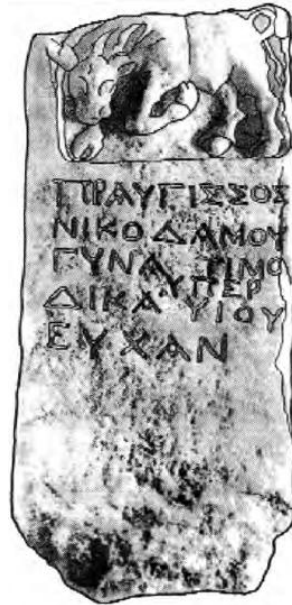 ΠΡΑΥΓΙΣΣΟΣ
ΝΙΚΟΔΑΜΟΥ
ΓΥΝΑ ΤΙΜΟ
ΔΙΚΑ ΥΠΕΡ
ΥΙΟΥ
ΕΥΧΑΝ